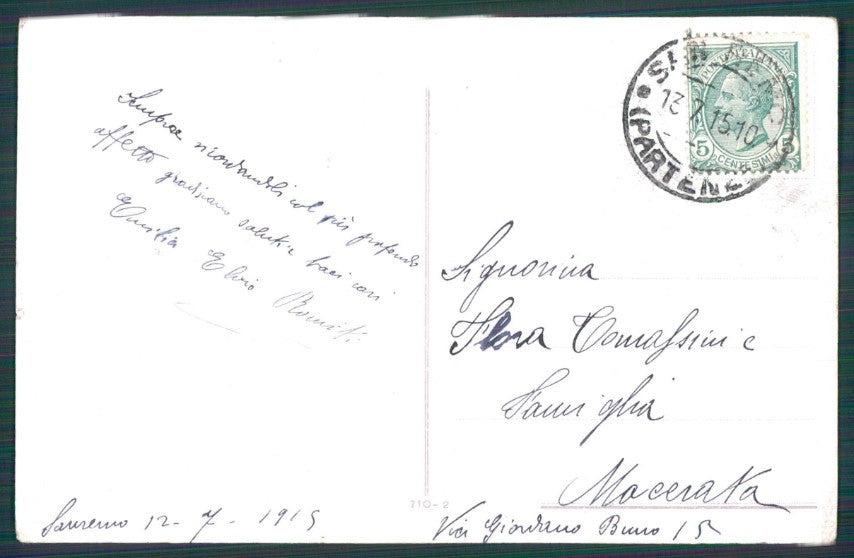 Sempre ricordandoli col più profondo
affetto gradiscano saluti e baci cari
Emilia Elvio
Sanremo 12-7-1915
POSTE ITALIANE
5 CENTESIMI 5
13.7.15.10
(PARTENZE
Signorina
Flora Tomassini e
Famiglia
Macerata
Via Giordano Bruno 15
710-2